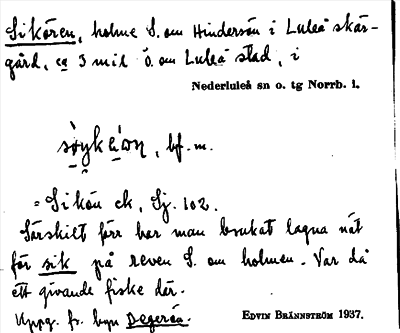 Sikören, holme S. om Hindersön i Luleå skär-
gård, ca 3 mil ö. om Luleå stad, i
Nederluleå sn o. tg Norrb. l.
bf. m.
= Sikön ek, Sj. 102.
Särskilt förr har man brukat lagna nät
för sik på reven S. om holmen. Var då
ett givande fiske där.
Uppg. fr. byn Degerön.
EDVIN BRÄNNSTRÖM 1937.